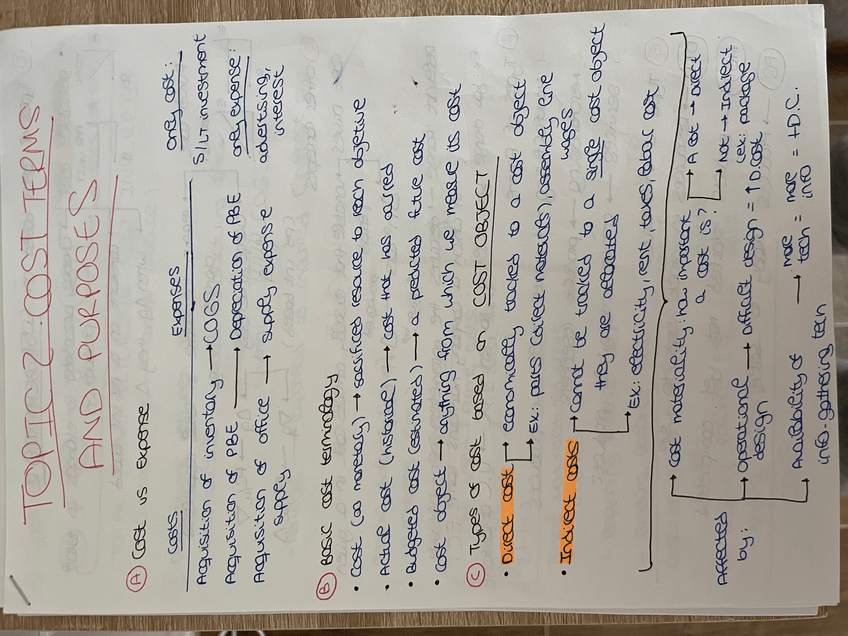 TOPIC 2: COST TERMS
AND PURPOSES
A Cost vs Expense
Costs Expenses Only cost:
Acquisition of inventory → COGS S/LT investment
Acquisition of PBE → Depreciation of PBE only expense:
Acquisition of office → supply expense advertising,
supply interest
B Basic cost terminology
• Cost (as monetary) → sacrificed resource to reach objetive
• Actual cost (historical) → cost that has occured
• Budgeted cost (estimated) → a predicted future cost
• Cost object → anything from which we measure its cost
C Types of cost based on COST OBJECT
• Direct cost → economically tracked to a cost object
→ Ex: parts (direct materials), assembly line
wages
• Indirect costs → cannot be tracked to a single cost object
they are allocated
→ Ex: electricity, rent, taxes, labor cost
Affected
by:
→ Cost materiality: how important → A lot → Direct
a cost is? → Not → Indirect
(ex: package
→ Operational → Difficult design = ↑ D.cost
design
→ Availability of → more tech = more info = +D.C.
info-gathering tech